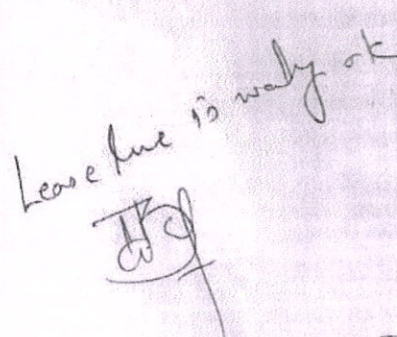 Lease line is working ok